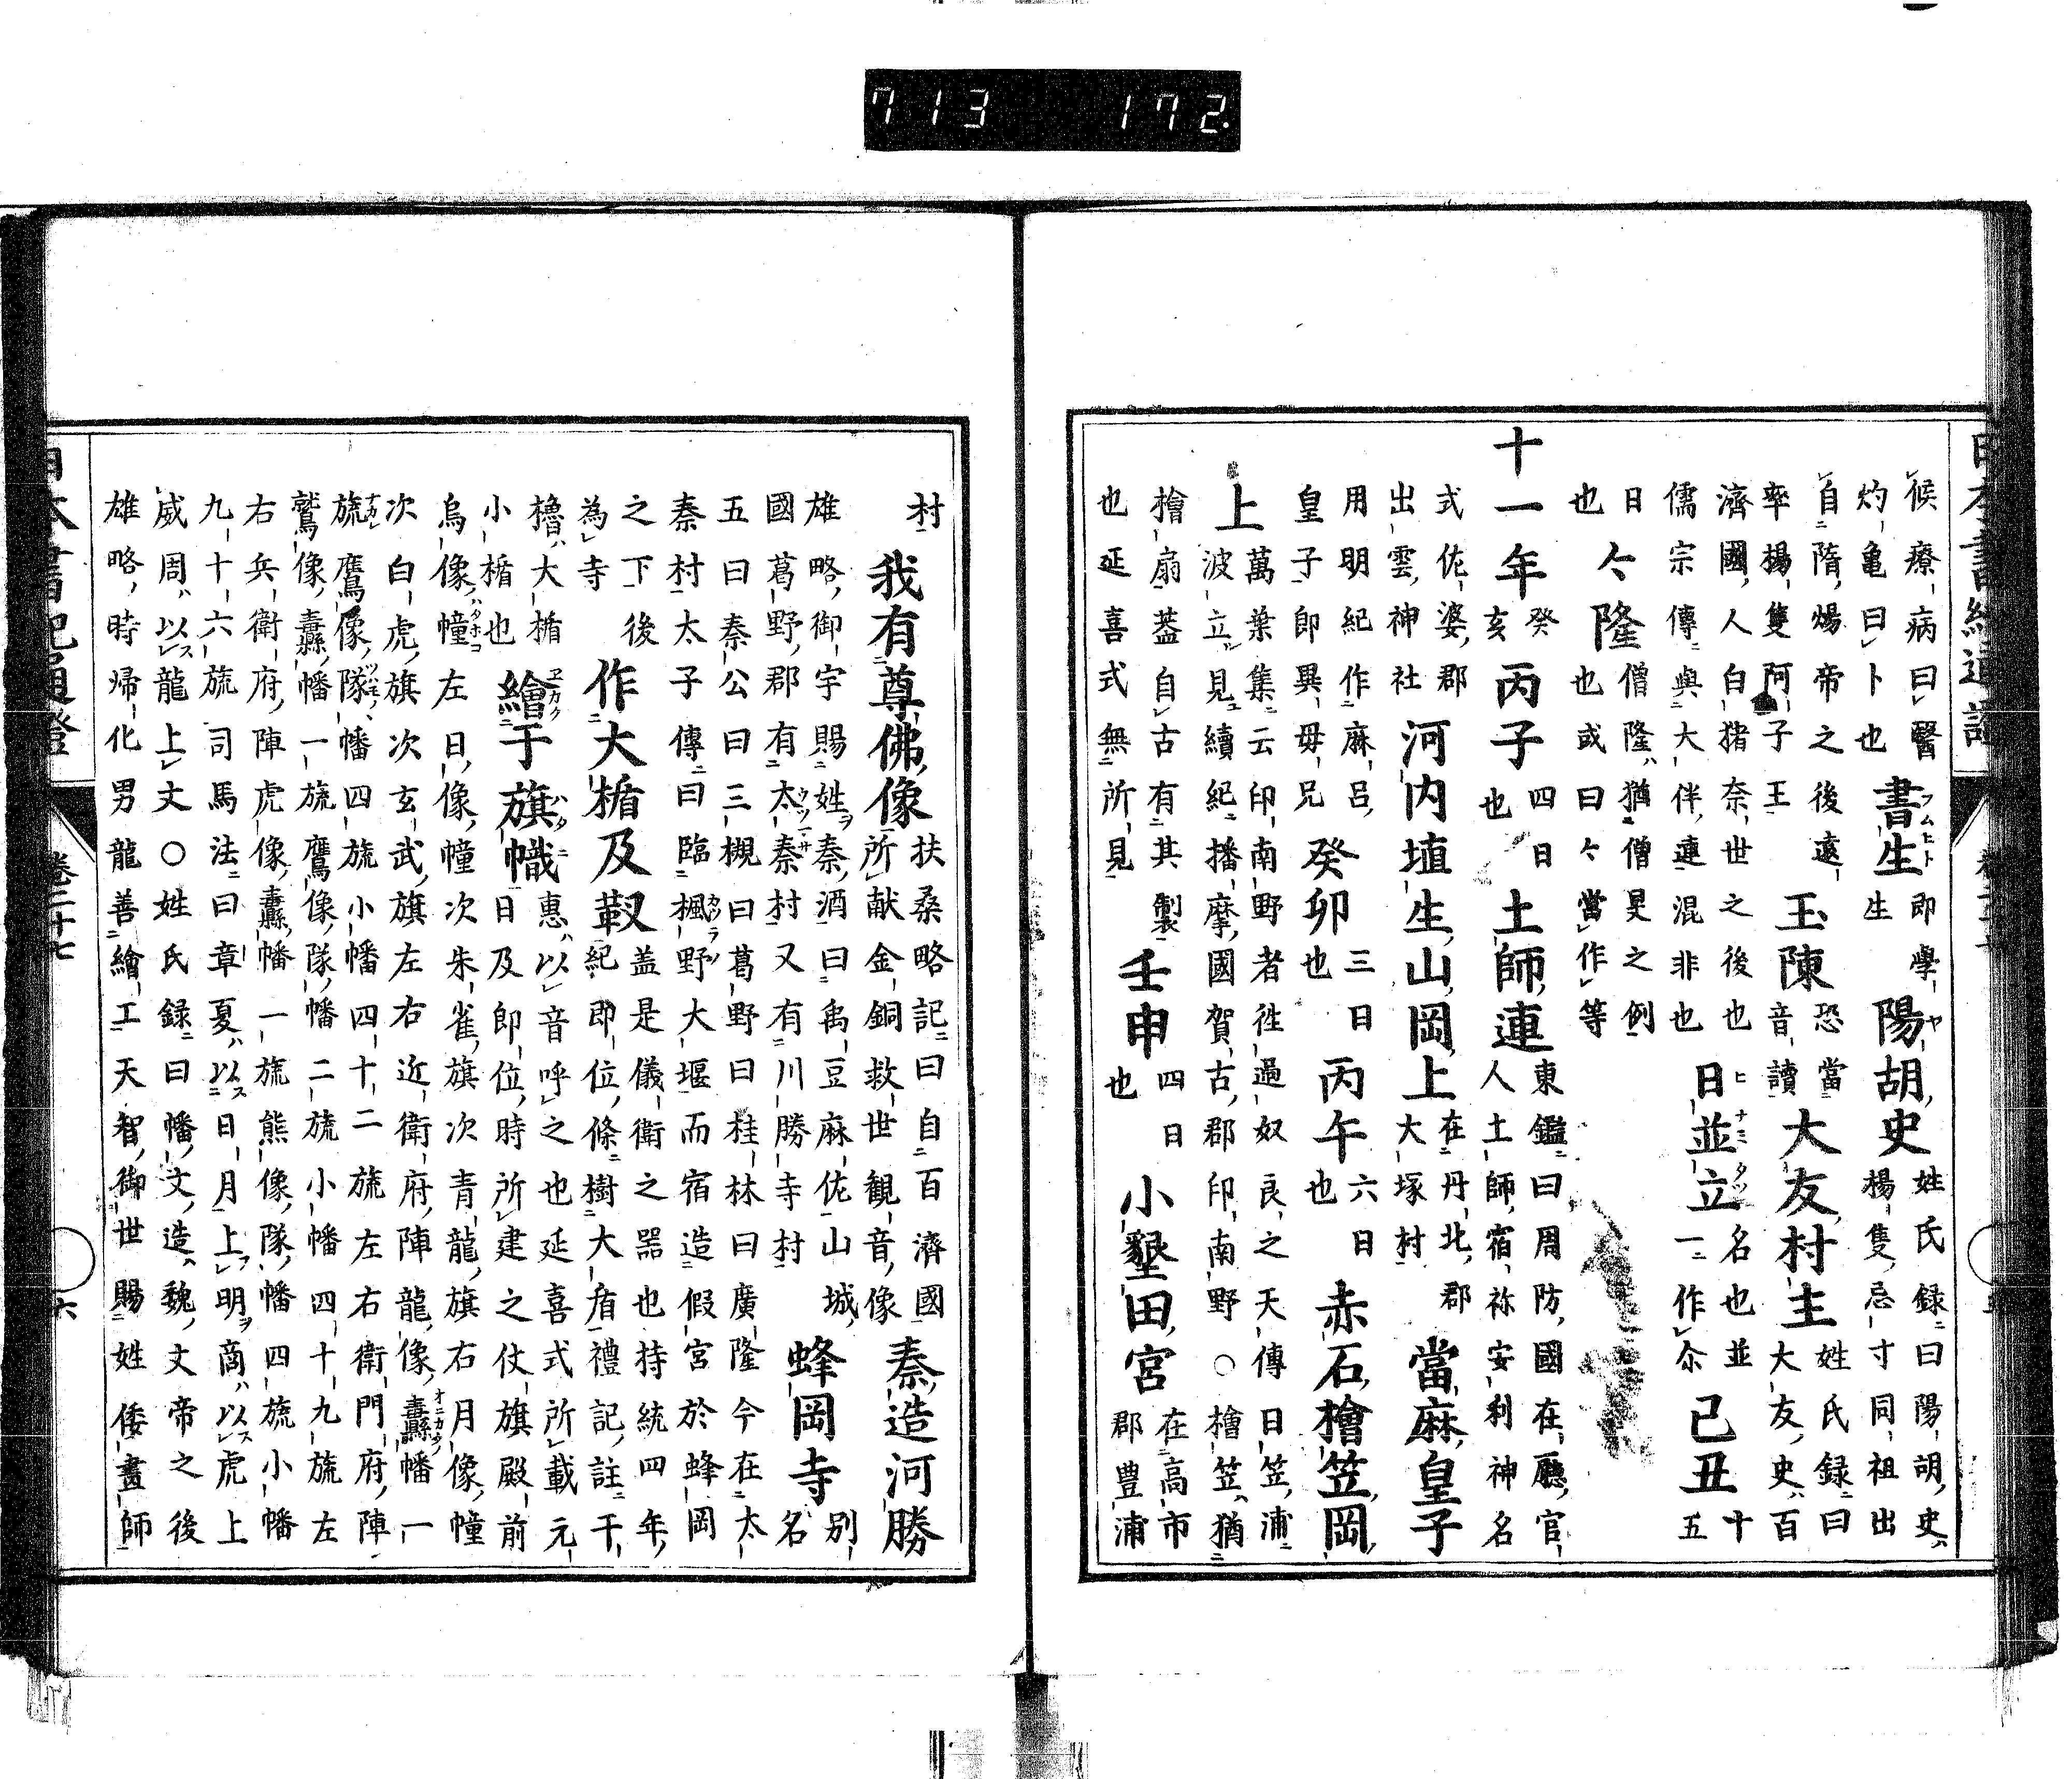 候療病曰醫
灼亀曰卜也
書生
即學
生
陽胡史
姓氏録曰陽胡史
楊隻忌寸同祖出
自隋煬帝之後遠
率楊隻阿子王
玉陳
恐當
音讀
大友村主
姓氏録曰
大友史百
濟國人白猪奈世之後也
儒宗傳與大伴連混非也
日並立
名也並
一作尒
己丑
十
五
日
也
仒隆
僧隆猶僧旻之例
也或曰仒當作等
十一年
癸
亥
丙子
四日
也
土師連
東鑑曰周防國在廳官
人土師宿祢安利神名
式佐婆郡
出雲神社
河内埴生山岡上
在丹北郡
大塚村
當麻皇子
用明紀作麻呂
皇子即異母兄
癸卯
三日
也
丙午
六日
也
赤石檜笠岡
上
萬葉集云印南野者徃過奴良之天傳日笠浦
波立見續紀播摩國賀古郡印南野○檜笠猶
檜扇葢自古有其製
也延喜式無所見
壬申
四日
也
小墾田宮
在高市
郡豊浦
村
我有尊佛像
扶桑略記曰自百濟國
所献金銅救世観音像
秦造河勝
雄略御宇賜姓秦酒曰禹豆麻佐山城
國葛野郡有太秦村又有川勝寺村
蜂岡寺
別
名
五曰秦公曰三槻曰葛野曰桂林曰廣隆今在太
秦村太子傳曰臨楓野大堰而宿造假宮於蜂岡
之下後
為寺
作大楯及靫
盖是儀衛之器也持統四年
紀即位條樹大盾禮記註干
櫓大楯
小楯也
繪于旗幟
惠以音呼之也延喜式所載元
日及即位時所建之仗旗殿前
烏像幢左日像幢次朱雀旗次青龍旗右月像幢
次白虎旗次玄武旗左右近衛府陣龍像纛幡一
旒鷹像隊幡四旒小幡四十二旒左右衛門府陣
鷲像纛幡一旒鷹像隊幡二旒小幡四十九旒左
右兵衛府陣虎像纛幡一旒熊像隊幡四旒小幡
九十六旒司馬法曰章夏以日月上明商以虎上
威周以龍上文○姓氏録曰幡文造魏文帝之後
雄略時帰化男龍善繪工天智御世賜姓倭畫師
卷二十七
六
713 172.